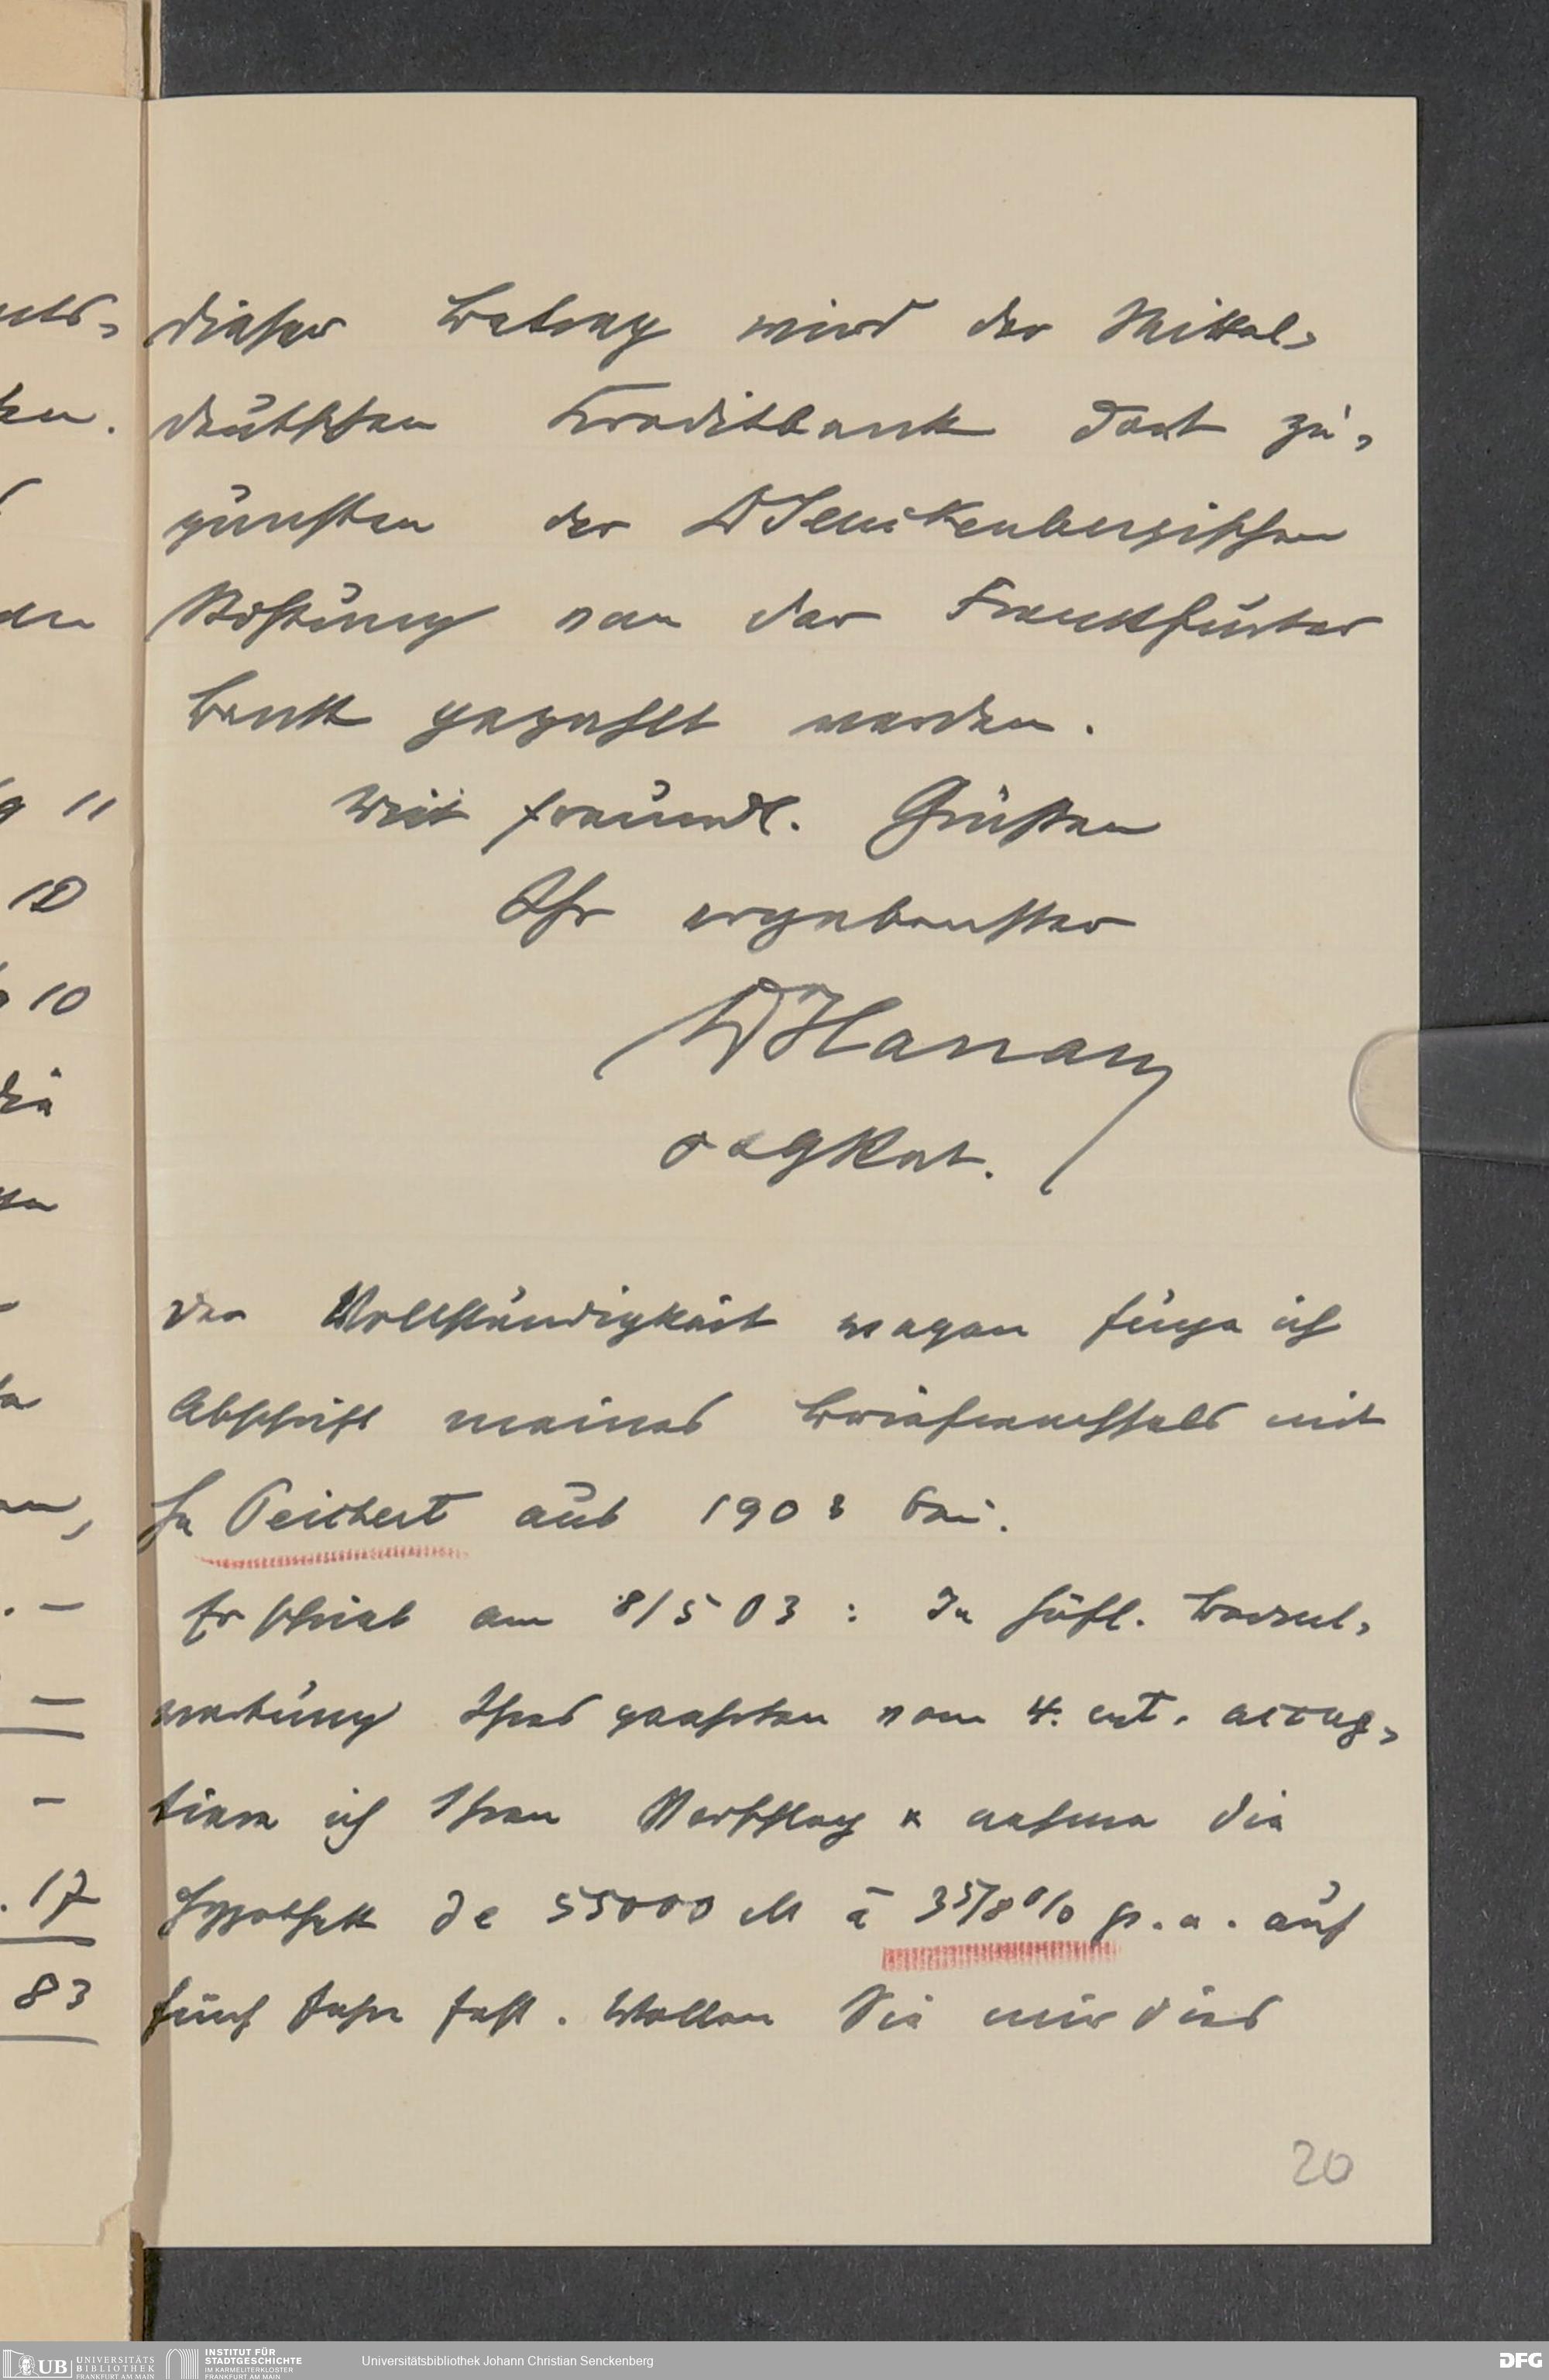 dieser Betrag wird der Mittel-
deutschen Kreditbank dort zu-
gunsten der Dr Senckenbergischen
Stiftung von der Frankfurter
Bank gezahlt werden.
Mit freundl. Grüßen
Ihr ergebenster
Dr Hanau
Der Vollständigkeit wegen füge ich
Abschrift meines Briefwechsels mit
H. Teichert aus 1903 bei.
Er schrieb am 8/5 03: In höfl. Beant-
wortung Ihres geehrten vom 4. crt. accep-
tiere ich Ihren Vorschlag & nehme die
Hypothek de 55000 M à 3 5/8 % p.a. auf
fünf Jahre fest. Wollen Sie mir dies
20
ten.
g 11
12
10
die
17
83
UB UNIVERSITÄTS
BIBLIOTHEK
FRANKFURT AM MAIN
INSTITUT FÜR
STADTGESCHICHTE
IM KARMELITERKLOSTER
FRANKFURT AM MAIN
Universitätsbibliothek Johann Christian Senckenberg
DFG